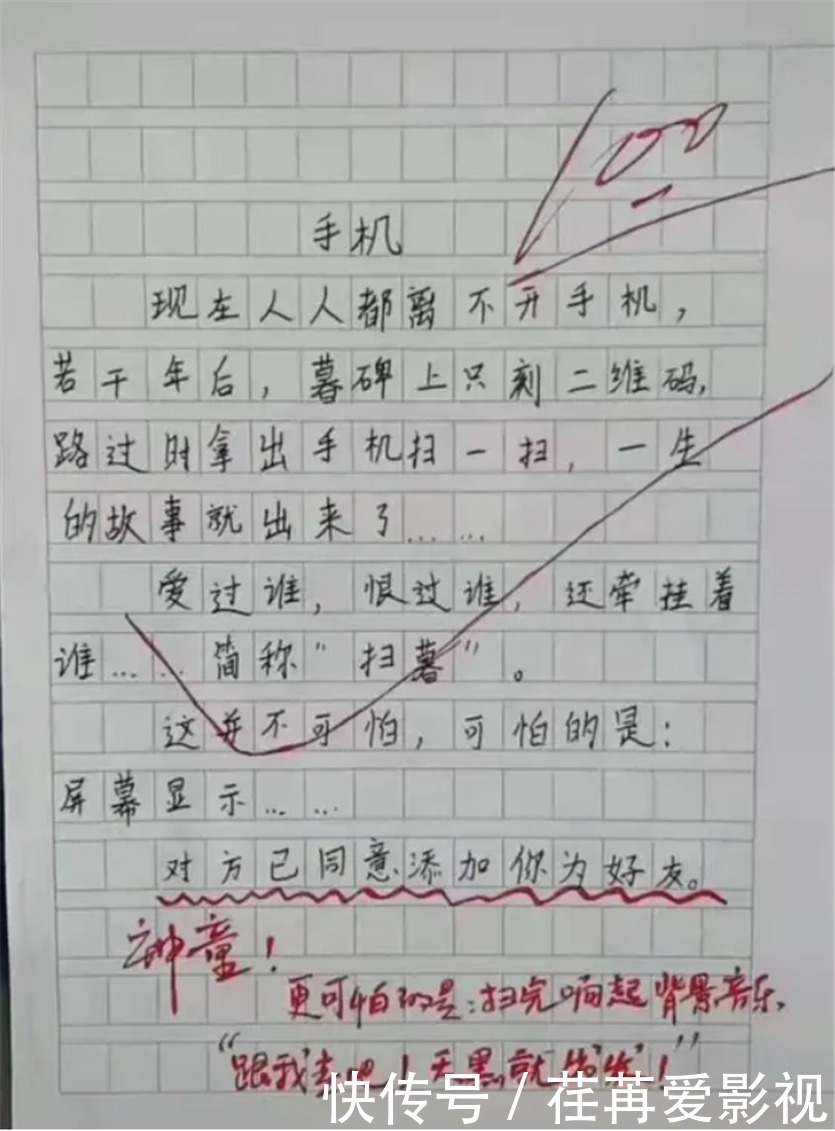 100
手机
现在人人都离不开手机，
若干年后，暮碑上只刻二维码，
路过时拿出手机扫一扫，一生
的故事就出来了……
爱过谁，恨过谁，还牵挂着
谁……简称“扫暮”。
这并不可怕，可怕的是：
屏幕显示……
对方已同意添加你为好友。
神童！
更可怕的是：扫完响起背景音乐，
“跟我走吧！天黑就出发！”
快传号 / 荏苒爱影视